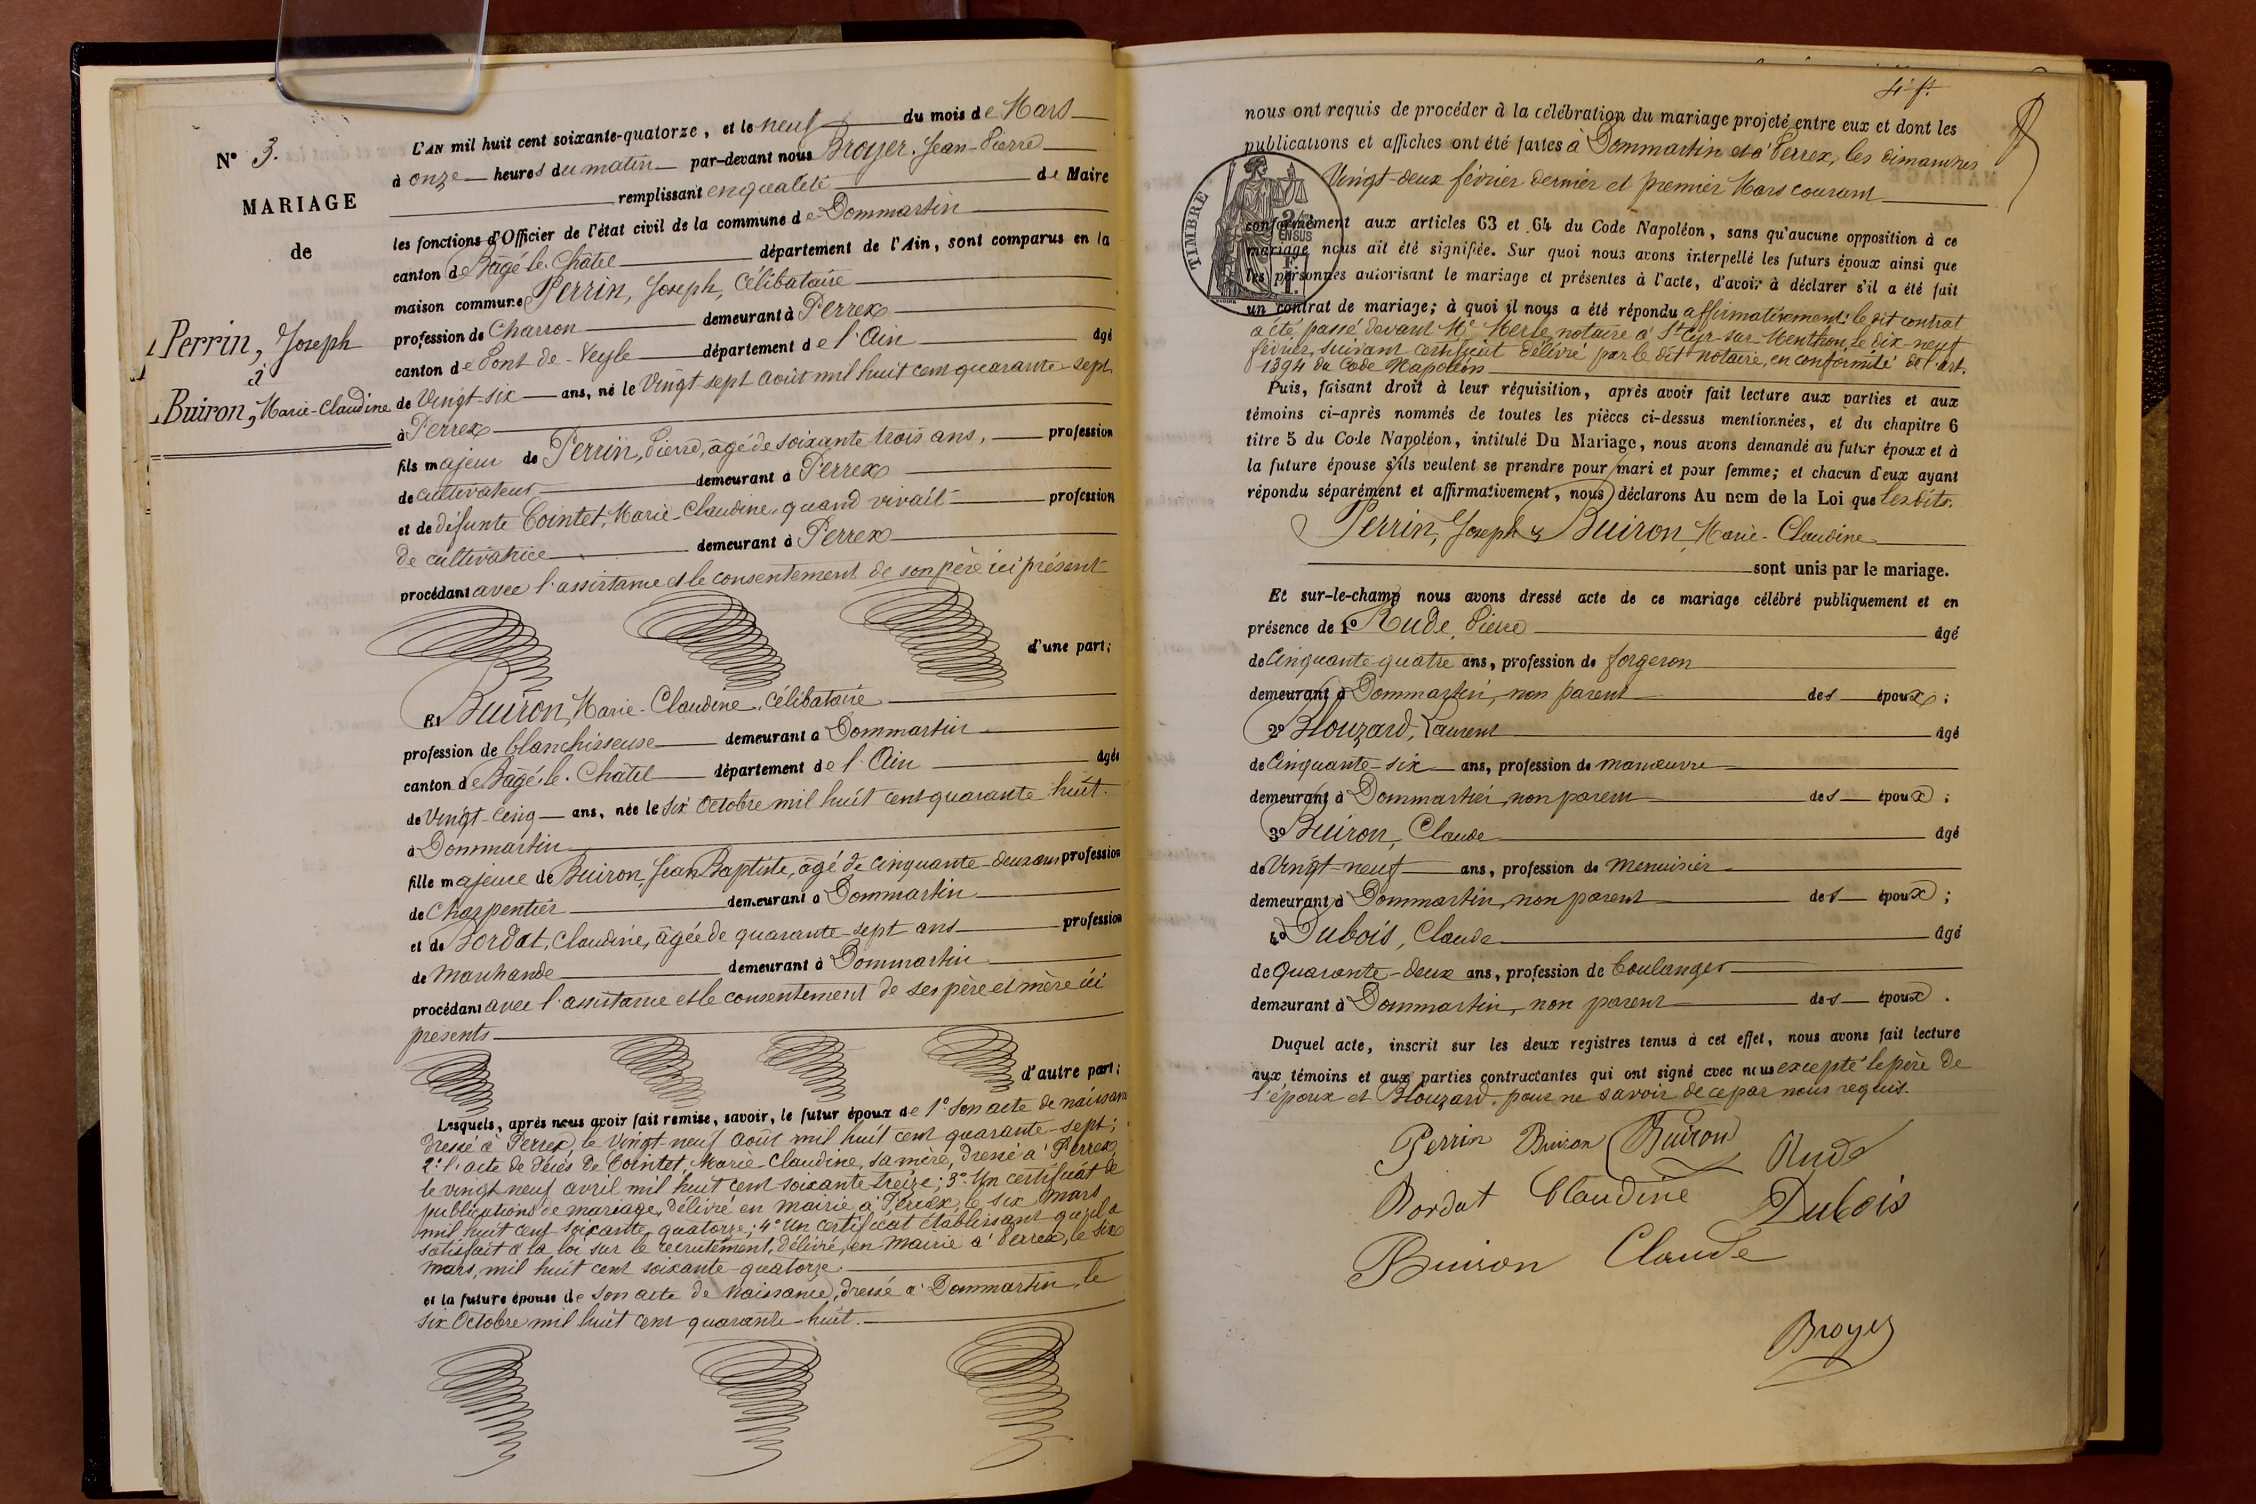 N° 3.
MARIAGE
de
Perrin, Joseph
à
Buiron, Marie-Claudine
L'AN mil huit cent soixante-quatorze, et le neuf du mois de Mars
à onze heures du matin par-devant nous Broyer, Jean-Pierre
remplissant en qualité de Maire
les fonctions d'Officier de l'état civil de la commune de Dommartin
canton de Bâgé-le-Châtel département de l'Ain, sont comparus en la
maison commune Perrin, Joseph, Célibataire
profession de Charron demeurant à Perrex
canton de Pont-de-Veyle département de l'Ain âgé
de Vingt-six ans, né le Vingt sept Août mil huit cent quarante-sept
à Perrex
fils majeur de Perrin, Pierre, âgé de soixante trois ans, profession
de cultivateur demeurant à Perrex
et de défunte Cointet, Marie-Claudine, quand vivait profession
de cultivatrice demeurant à Perrex
procédant avec l'assistance et le consentement de son père ici présent
d'une part;
Et Buiron, Marie-Claudine, célibataire
profession de blanchisseuse demeurant à Dommartin
canton de Bâgé-le-Châtel département de l'Ain âgée
de Vingt-cinq ans, née le six Octobre mil huit cent quarante huit.
à Dommartin
fille majeure de Buiron, Jean Baptiste, âgé de cinquante-deux ans profession
de Charpentier demeurant à Dommartin
et de Bordat, Claudine, âgée de quarante-sept ans profession
de Marchande demeurant à Dommartin
procédant avec l'assistance et le consentement de ses père et mère ici
présents
d'autre part;
Lesquels, après nous avoir fait remise, savoir, le futur époux de 1° Son acte de naissance
dressé à Perrex, le Vingt-neuf Août mil huit cent quarante-sept;
2° l'acte de décès de Cointet, Marie-Claudine, sa mère, dressé à Perrex,
le vingt neuf avril mil huit cent soixante treize; 3° Un certificat de
publications de mariage, délivré en mairie à Perrex, le six Mars
mil huit cent soixante quatorze; 4° Un certificat établissant qu'il a
satisfait à la loi sur le recrutement, délivré, en Mairie à Perrex, le six
mars, mil huit cent soixante-quatorze.
et la future épouse de son acte de Naissance, dressé à Dommartin, le
six Octobre mil huit cent quarante-huit.
nous ont requis de procéder à la célébration du mariage projeté entre eux et dont les
publications et affiches ont été faites à Dommartin et à Perrex, les dimanches
Vingt-deux février dernier et premier Mars courant
TIMBRE
conformément aux articles 63 et 64 du Code Napoléon, sans qu'aucune opposition à ce
mariage nous ait été signifiée. Sur quoi nous avons interpellé les futurs époux ainsi que
les personnes autorisant le mariage et présentes à l'acte, d'avoir à déclarer s'il a été fait
un contrat de mariage; à quoi il nous a été répondu affirmativement; le dit contrat
a été passé devant Me Merle, notaire à St Cyr-sur-Menthon, le dix-neuf
février, suivant certificat délivré par le dit notaire, en conformité de l'art.
1394 du Code Napoléon
Puis, faisant droit à leur réquisition, après avoir fait lecture aux parties et aux
témoins ci-après nommés de toutes les pièces ci-dessus mentionnées, et du chapitre 6
titre 5 du Code Napoléon, intitulé Du Mariage, nous avons demandé au futur époux et à
la future épouse s'ils veulent se prendre pour mari et pour femme; et chacun d'eux ayant
répondu séparément et affirmativement, nous déclarons Au nom de la Loi que les dits
Perrin, Joseph & Buiron, Marie-Claudine
sont unis par le mariage.
Et sur-le-champ nous avons dressé acte de ce mariage célébré publiquement et en
présence de 1° Rude, Pierre âgé
de Cinquante-quatre ans, profession de forgeron
demeurant à Dommartin, non parent des époux;
2° Blouzard, Laurent âgé
de Cinquante-six ans, profession de manœuvre
demeurant à Dommartin, non parent des époux;
3° Buiron, Claude âgé
de Vingt-neuf ans, profession de Menuisier
demeurant à Dommartin, non parent des époux;
4° Dubois, Claude âgé
de Quarante-deux ans, profession de boulanger
demeurant à Dommartin, non parent des époux.
Duquel acte, inscrit sur les deux registres tenus à cet effet, nous avons fait lecture
aux témoins et aux parties contractantes qui ont signé avec nous excepté le père de
l'époux et Blouzard, pour ne savoir de ce par nous requis.
Perrin Buiron Buiron Rude
Bordat Claudine Dubois
Buiron Claude
Broyer